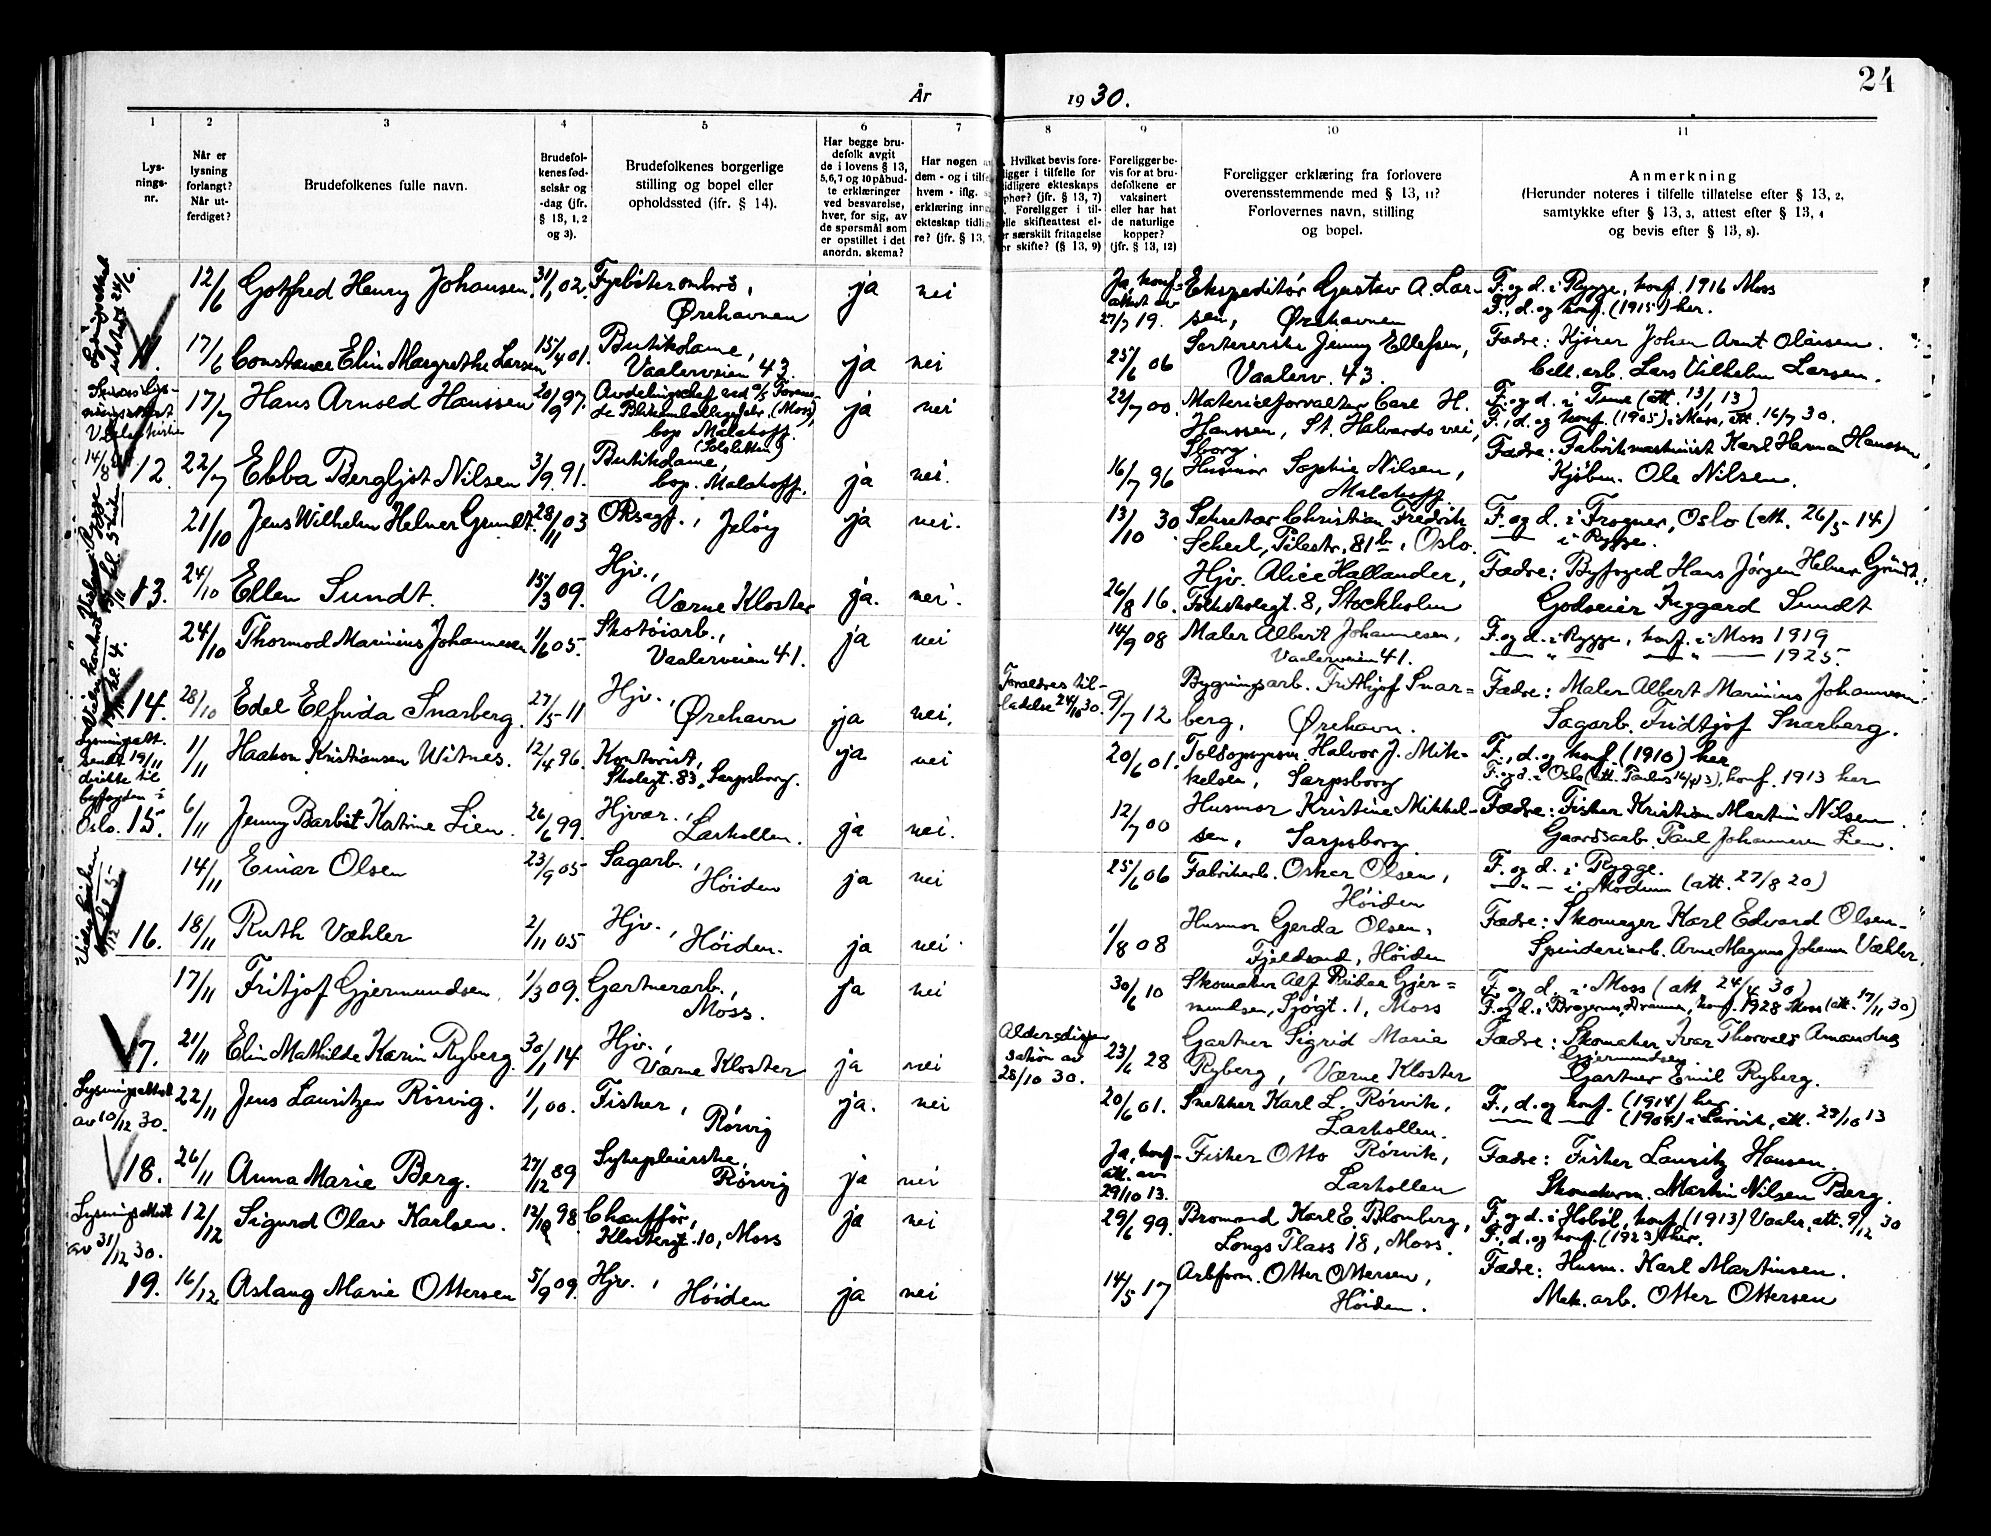 24
År 1930.
1 2 3 4 5 6 7 8 9 10 11
Lys-
nings-
nr.
Når er
lysning
forlangt?
Når ut-
ferdiget?
Brudefolkenes fulle navn.
Brudefol-
kenes fød-
selsår og
-dag (jfr.
§ 13, 1, 2
og 3).
Brudefolkenes borgerlige
stilling og bopel eller
opholdssted (jfr. § 14).
Har begge bru-
defolk avgit
de i lovens § 13,
5,6,7 og 10 påbud-
te erklæringer
ved besvarelse,
hver, for sig, av
de spørsmål som
er opstillet i det
anordn. skema?
Har nogen
dem - og i tilf
hvem - iflg.
erklæring inn
ekteskap tidli
re? (jfr. § 13,
Hvilket bevis fore-
ligger i tilfelle for
tidligere ekteskaps
ophør? (jfr. § 13, 7)
Foreligger i til-
elle skifteattest el-
er særskilt fritagelse
or skifte? (§ 13, 9)
Foreligger be-
vis for at bru-
defolkene er
vaksinert
eller har hat
de naturlige
kopper?
(jfr. § 13, 12)
Foreligger erklæring fra forlovere
overensstemmende med § 13, 11?
Forlovernes navn, stilling
og bopel.
Anmerkning
(Herunder noteres i tilfelle tillatelse efter § 13, 2,
samtykke efter § 13, 3, attest efter § 13, 4
og bevis efter § 13, 8).
12/6 Gotfred Henry Johansen. 31/1 02. Fyrbøter ombord, Ørehavnen ja nei Ja, konf.- attest av 27/7 19. Ekspeditør Gustav A. Lar-
sen, Ørehavnen
F. og d. i Rygge, konf. 1916 Moss
F., d. og konf. (1915) her.
11. 17/6 Constance Elin Margrethe Larsen 15/4 01. Butikdame, Vaalerveien 43. ja nei 25/6 06 Sortererske Jenny Ellefsen,
Vaalerv. 43.
Fædre: Kjører Johan Arnt Olausen.
Cell. arb. Lars Vilhelm Larsen.
17/7 Hans Arnold Hanssen 20/9 97. Avdelingschef ved a/s Forene-
de Blikemballagefabr. (Moss),
bop. Malakoff. (Solsletten) ja nei 22/7 00. Materialforvalter Carl H.
Hanssen, St. Halvards vei,
Sborg
F. og d. i Tune (att. 13/1 13)
F., d. og konf. (1905) i Moss, att. 16/7 30.
12. 22/7 Ebba Bergljot Nilsen 3/9 91. Butikdame,
bop. Malakoff. ja nei. 16/7 96 Husmor Sophie Nilsen,
Malakoff
Fædre: Fabrikmaskinist Karl Herman Hanssen
Kjøbm. Ole Nilsen.
21/10 Jens Wilhelm Helner Grundt. 28/11 03 OKsagf., Jeløy ja nei. 13/10 30 Sekretær Christian Fredrik
Scheel, Pilestr. 81b, Oslo.
F. og d. i Frogner, Oslo (att. 26/5-14)
— " — i Rygge.
13. 24/10 Ellen Sundt. 15/3 09. Hjv., Værne Kloster ja. nei. 26/8 16. Hjv. Alice Hallander,
Folkskolegt. 8, Stockholm
Fædre: Byfoged Hans Jørgen Helner Gründt.
Godseier Inggard Sundt
24/10 Thormod Marinius Johannesen 1/6 05. Skotøiarb.,
Vaalerveien 41. ja nei 14/9 08 Maler Albert Johannesen,
Vaalerveien 41.
F. og d. i Rygge, konf. i Moss 1919
— " — — " — 1925.
14. 28/10 Edel Elfrida Snarberg. 27/5-11 Hjv., Ørehavn ja nei, Foreldres til-
ladelse 24/10 30. 9/7 12 Bygningsarb. Frithjof Snar=
berg, Ørehavn.
Fædre: Maler Albert Marinius Johannesen
Sagarb. Fridtjof Snarberg.
Lysningsatt.
sendt 19/11
direkte til
byfogden i
Oslo.
1/11 Haakon Kristiansen Witnes. 12/4 96. Kontorist,
Skolegt. 83, Sarpsborg. ja nei 20/6 01. Toldopsynsm. Halvor J. Mik-
kelsen, Sarpsborg
F., d. og konf. (1910) her
F. og d. i Oslo (att. Paulus 16/4 13), konf. 1913 her
15. 6/11 Jenny Barbit Katrine Lien. 26/6 99. Hjvær., Larkollen. ja nei. 12/7 00 Husmor Kristine Mikkel-
sen, Sarpsborg.
Fædre: Fisker Kristian Martin Nilsen.
Gaardsarb. Paul Johannesen Lien.
14/11 Einar Olsen 23/9 05 Sagarb., Høiden ja nei 25/6 06 Fabrikarb. Oskar Olsen,
Høiden
F. og d. i Rygge.
— " — i Modum (att. 27/8 20)
16. 18/11 Ruth Væhler 2/11 05 Hjv., Høiden. ja nei. 1/8 08 Husmor Gerda Olsen,
Fjeldsand, Høiden
Fædre: Skomager Karl Edvard Olsen
Spinderiarb. Arne Magnus Johann Væhler
17/11 Fritjof Gjermundsen. 1/3 09. Gartnerarb.,
Moss. ja nei 30/6 10 Skomaker Alf Rikar Gjer=
mundsen, Sjøgt. 1, Moss
F. og d. i Moss (att 24/4 30)
F. og d. i Bragernes, Drammen, konf. 1928 Moss (att. 17/11 30)
17. 21/11 Elin Mathilde Karin Ryberg. 30/1 14. Hjv.,
Værne Kloster ja nei Aldersdispen
sation av
28/10 30. 23/6 28 Gartner Sigrid Marie
Ryberg, Værne Kloster
Fædre: Skomaker Ivar Thorvald Amandus
Gjermundsen.
Gartner Emil Ryberg.
Lysningsattest
av 10/12 30.
22/11 Jens Lauritzen Rørvig. 1/1 00. Fisker,
Rørvig ja. nei 20/6 01. Snekker Karl L. Rørvik,
Larkollen.
F., d. og konf. (1914) her
— " — (1904) i Larvik, att. 29/10 13
18. 26/11 Anna Marie Berg. 27/12 89 Sykepleierske,
Rørvig ja nei Ja, konf-
att. av
29/10 13. Fisker Otto Rørvik,
Larkollen
Fædre: Fisker Lauritz Hansen.
Skomakerm. Martin Nilsen Berg.
Lysningsattest
av 31/12 30.
12/12 Sigurd Olav Karlsen. 12/10 98 Chauffør,
Klostergt. 10, Moss ja nei 29/6 99. Bromand Karl E. Blomberg,
Longs Plass 18, Moss.
F. og d. i Hobøl, konf. (1913) Vaaler, att. 9/12 30
F., d. og konf. (1923) her.
19. 16/12 Aslaug Marie Ottersen 5/9 09. Hjv., Høiden ja nei 14/5 17 Arbform. Otter Ottersen,
Høiden.
Fædre: Husm. Karl Martinsen.
Mek. arb. Otter Ottersen